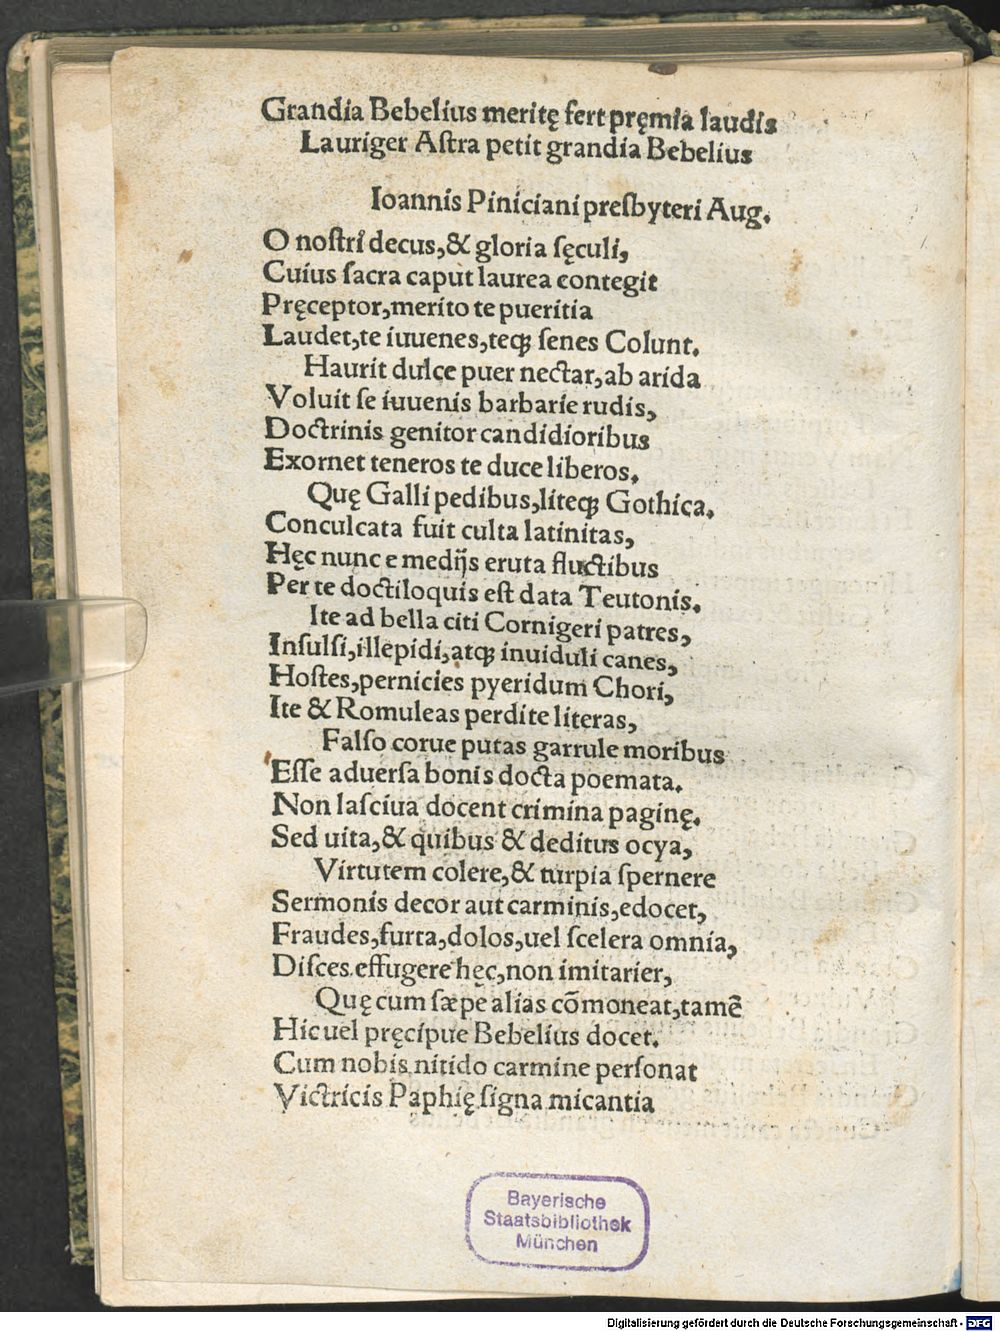 Grandia Bebelius meritę fert pręmia laudis
Lauriger Aſtra petit grandia Bebelius
Ioannis Piniciani preſbyteri Aug.
O noſtri decus,& gloria ſęculi,
Cuius ſacra caput laurea contegit
Pręceptor,merito te pueritia
Laudet,te iuuenes,teqꝫ ſenes Colunt.
Haurit dulce puer nectar,ab arida
Voluit ſe iuuenis barbarie rudis,
Doctrinis genitor candidioribus
Exornet teneros te duce liberos.
Quę Galli pedibus,liteqꝫ Gothica.
Conculcata fuit culta latinitas,
Hęc nunc e medijs eruta fluctibus
Per te doctiloquis eſt data Teutonis.
Ite ad bella citi Cornigeri patres,
Inſulſi,illepidi,atqꝫ inuiduli canes,
Hoſtes,pernicies pyeridum Chori,
Ite & Romuleas perdite literas,
Falſo corue putas garrule moribus
Eſſe aduerſa bonis docta poemata.
Non laſciua docent crimina paginę.
Sed uita,& quibus & deditus ocya,
Virtutem colere,& turpia ſpernere
Sermonis decor aut carminis,edocet,
Fraudes,furta,dolos,uel ſcelera omnia,
Diſces effugere hęc,non imitarier,
Quę cum ſæpe alias cōmoneat,tamē
Hic uel pręcipue Bebelius docet.
Cum nobis nitido carmine perſonat
Victricis Paphię ſigna micantia
Bayerische
Staatsbibliothek
München
Digitalisierung gefördert durch die Deutsche Forschungsgemeinschaft - DFG